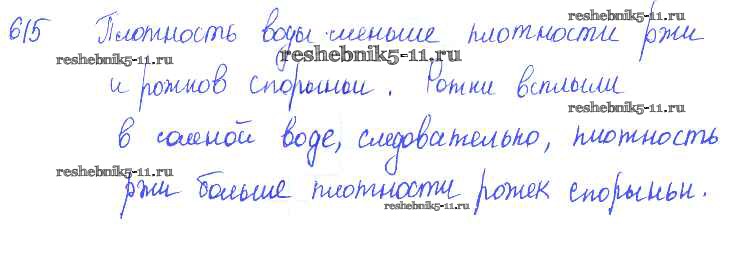 615 Плотность воды меньше плотности ржи
reshebnik5-11.ru
reshebnik5-11.ru
reshebnik5-11.ru
и рожков спорыньи. Рожки всплыли
reshebnik5-11.ru
в соленой воде, следовательно, плотность
reshebnik5-11.ru
ржи больше плотности рожек спорыньи.
reshebnik5-11.ru